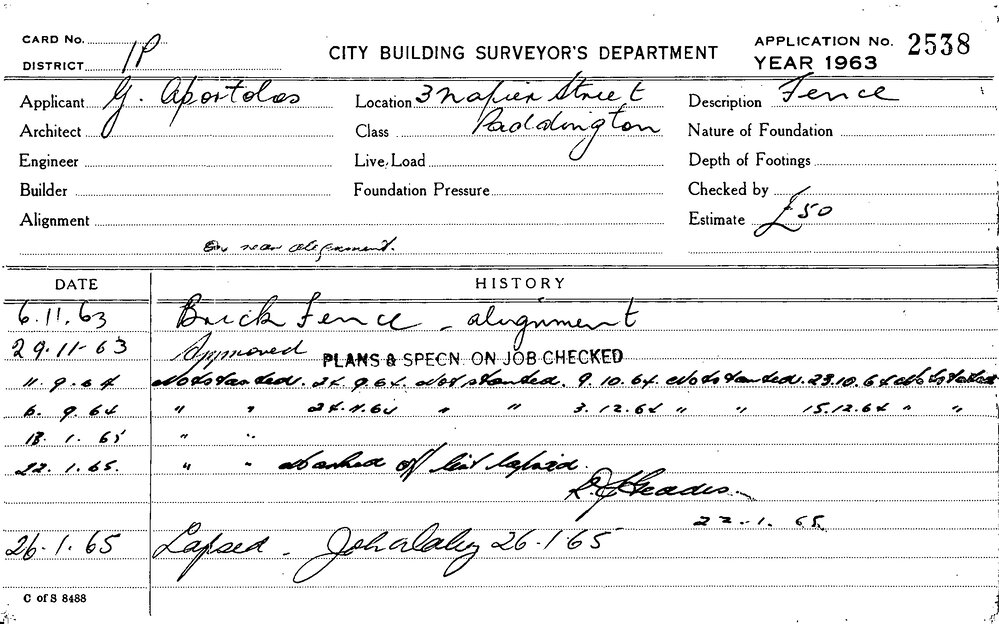 CARD No. 1P
DISTRICT
CITY BUILDING SURVEYOR'S DEPARTMENT
APPLICATION No. 2538
YEAR 1963
Applicant G. Apostolos
Location 3 Napier Street
Description Fence
Architect
Class Paddington
Nature of Foundation
Engineer
Live Load
Depth of Footings
Builder
Foundation Pressure
Checked by
Alignment
Estimate £50
On rear alignment.
DATE HISTORY
6.11.63 Brick Fence - alignment
29.11-63 Approved PLANS & SPECN ON JOB CHECKED
11.9.64 Not started. 24.9.64. Not started. 9.10.64. Not started. 23.10.64 Not started
6. 9.64 " " 24.11.64 " " 3.12.64 " " 15.12.64 " "
13.1.65 " "
22.1.65. " " Marked off list lapsed.
22-1.65.
26.1.65 Lapsed - 26.1.65
C of S 8488